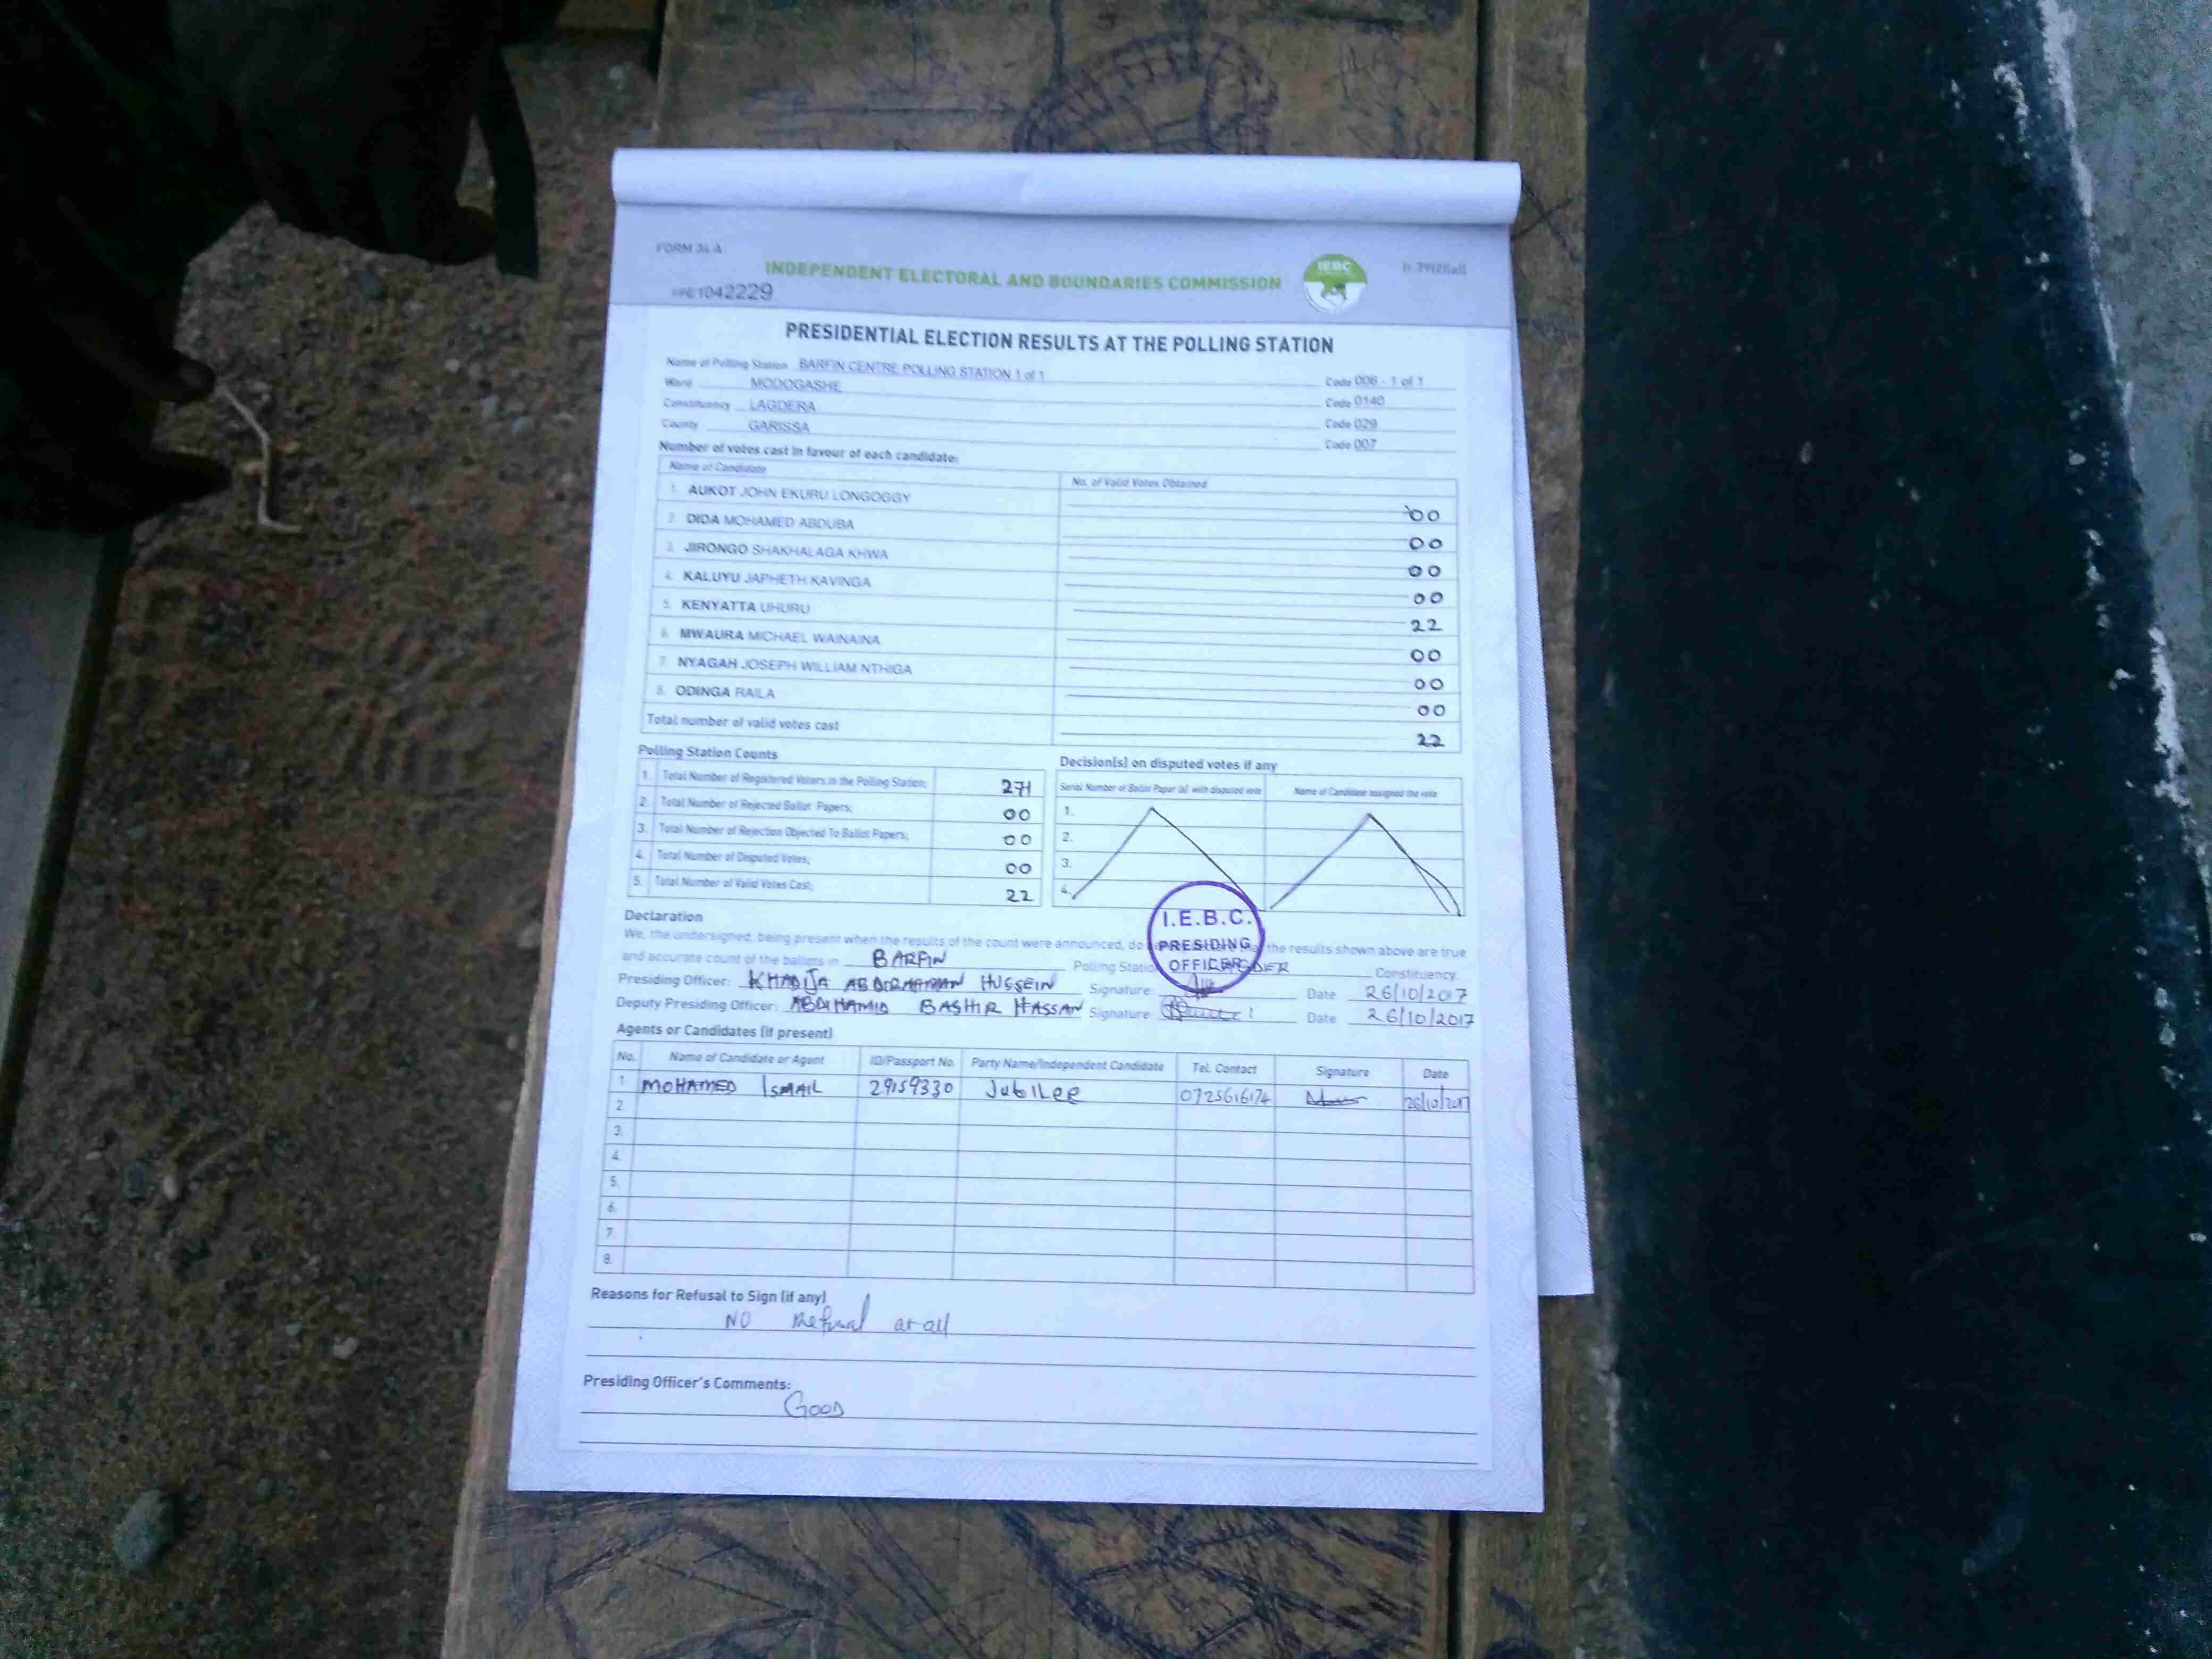 FORM 34 A
(r.79(2)(a))
INDEPENDENT ELECTORAL AND BOUNDARIES COMMISSION
IEBC
1042229
PRESIDENTIAL ELECTION RESULTS AT THE POLLING STATION
Name of Polling Station BARFIN CENTRE POLLING STATION 1 of 1 Code 006 - 1 of 1
Ward MODOGASHE Code 0140
Constituency LAGDERA Code 029
County GARISSA Code 007
Number of votes cast in favour of each candidate:
Name of Candidate No. of Valid Votes Obtained
1. AUKOT JOHN EKURU LONGOGGY 00
2. DIDA MOHAMED ABDUBA 00
3. JIRONGO SHAKHALAGA KHWA 00
4. KALUYU JAPHETH KAVINGA 00
5. KENYATTA UHURU 22
6. MWAURA MICHAEL WAINAINA 00
7. NYAGAH JOSEPH WILLIAM NTHIGA 00
8. ODINGA RAILA 00
Total number of valid votes cast 22
Polling Station Counts
1. Total Number of Registered Voters in the Polling Station; 271
2. Total Number of Rejected Ballot Papers; 00
3. Total Number of Rejection Objected To Ballot Papers; 00
4. Total Number of Disputed Votes; 00
5. Total Number of Valid Votes Cast; 22
Decision(s) on disputed votes if any
Serial Number of Ballot Paper (s) with disputed vote Name of Candidate assigned the vote
1.
2.
3.
4.
I.E.B.C.
PRESIDING
OFFICER
Declaration
We, the undersigned, being present when the results of the count were announced, do the results shown above are true
and accurate count of the ballots in BARFIN Polling Station Constituency.
Presiding Officer: KHADIJA ABDIRAHMAN HUSSEIN Signature: Date 26/10/2017
Deputy Presiding Officer: ABDIHAMID BASHIR HASSAN Signature: Date 26/10/2017
Agents or Candidates (if present)
No. Name of Candidate or Agent ID/Passport No. Party Name/Independent Candidate Tel. Contact Signature Date
1 MOHAMED ISMAIL 29159330 JubiLee 0725616174 26/10/2017
2.
3.
4.
5.
6.
7.
8.
Reasons for Refusal to Sign (if any)
NO Refusal at all
Presiding Officer's Comments:
GOOD